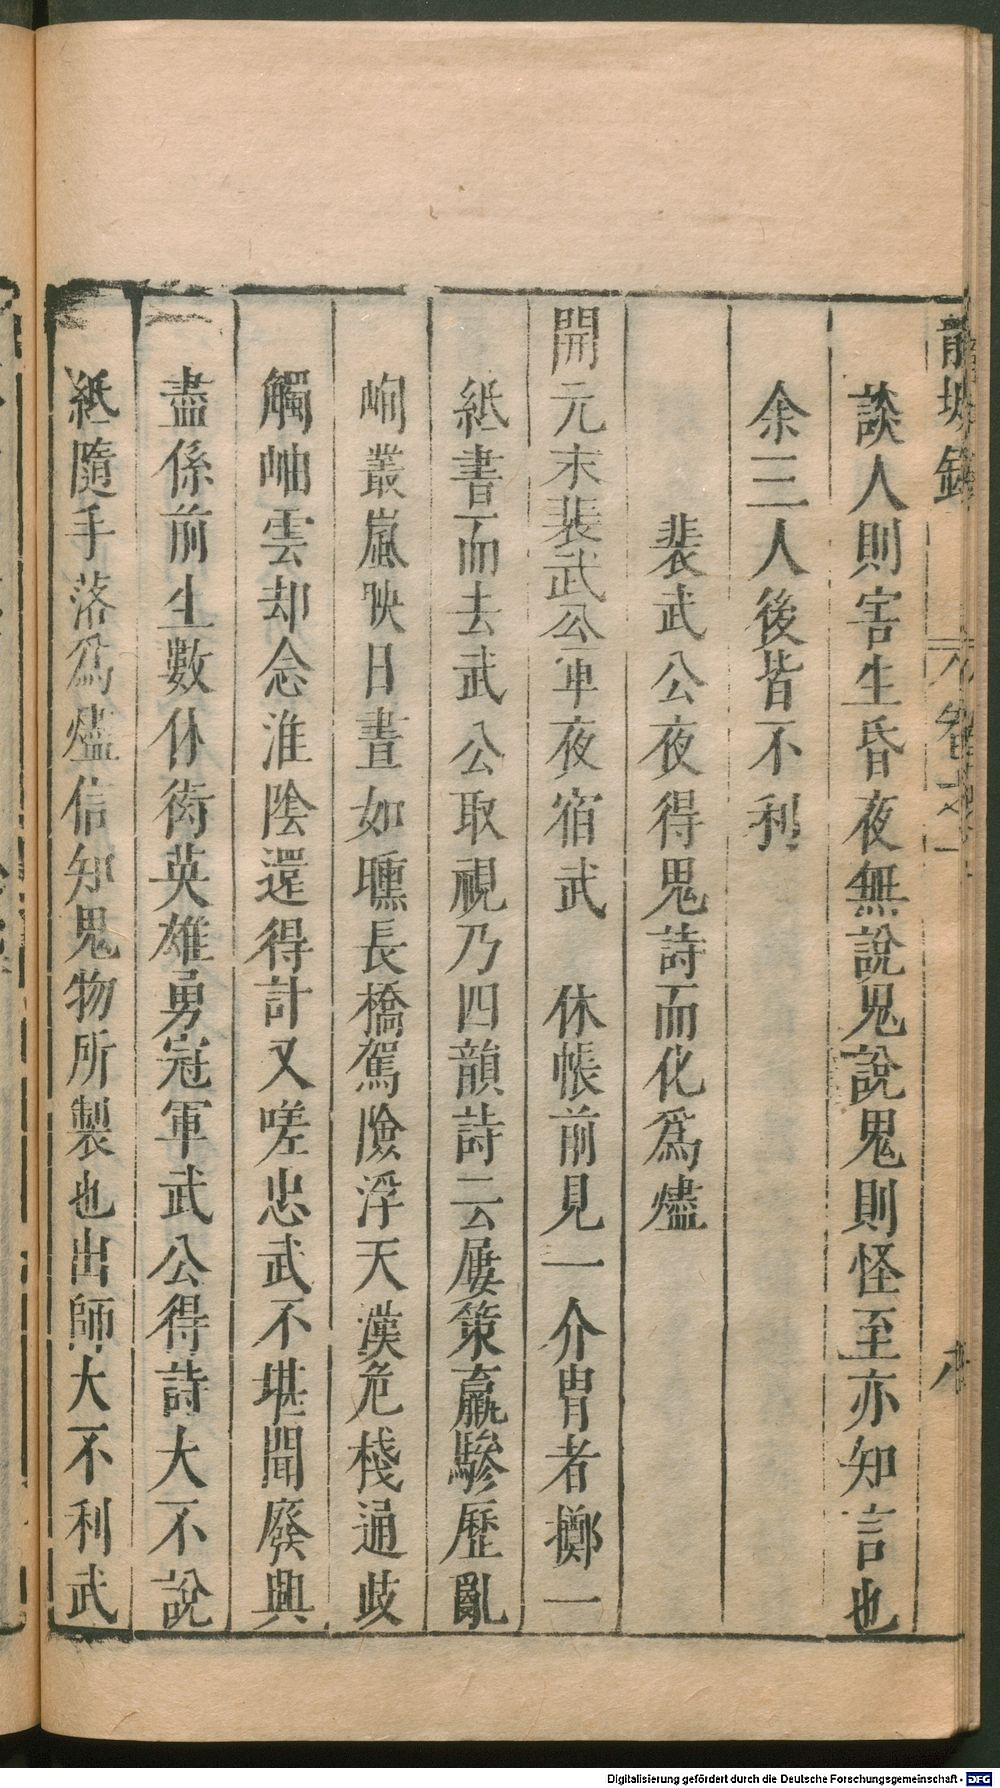 談人則害生昏夜無說鬼說鬼則怪至亦知言也
余三人後皆不利
裴武公夜得鬼詩而化爲燼
開元末裴武公軍夜宿武 休帳前見一介胄者擲一
紙書而去武公取視乃四韻詩云屢策羸驂歷亂
峋叢嵐映日晝如曛長橋駕險浮天漢危棧通歧
觸岫雲却念淮陰還得計又嗟忠武不堪聞廢興
盡係前生數休衒英雄勇冠軍武公得詩大不說
紙隨手落爲燼信知鬼物所製也出師大不利武
Digitalisierung gefördert durch die Deutsche Forschungsgemeinschaft - DFG